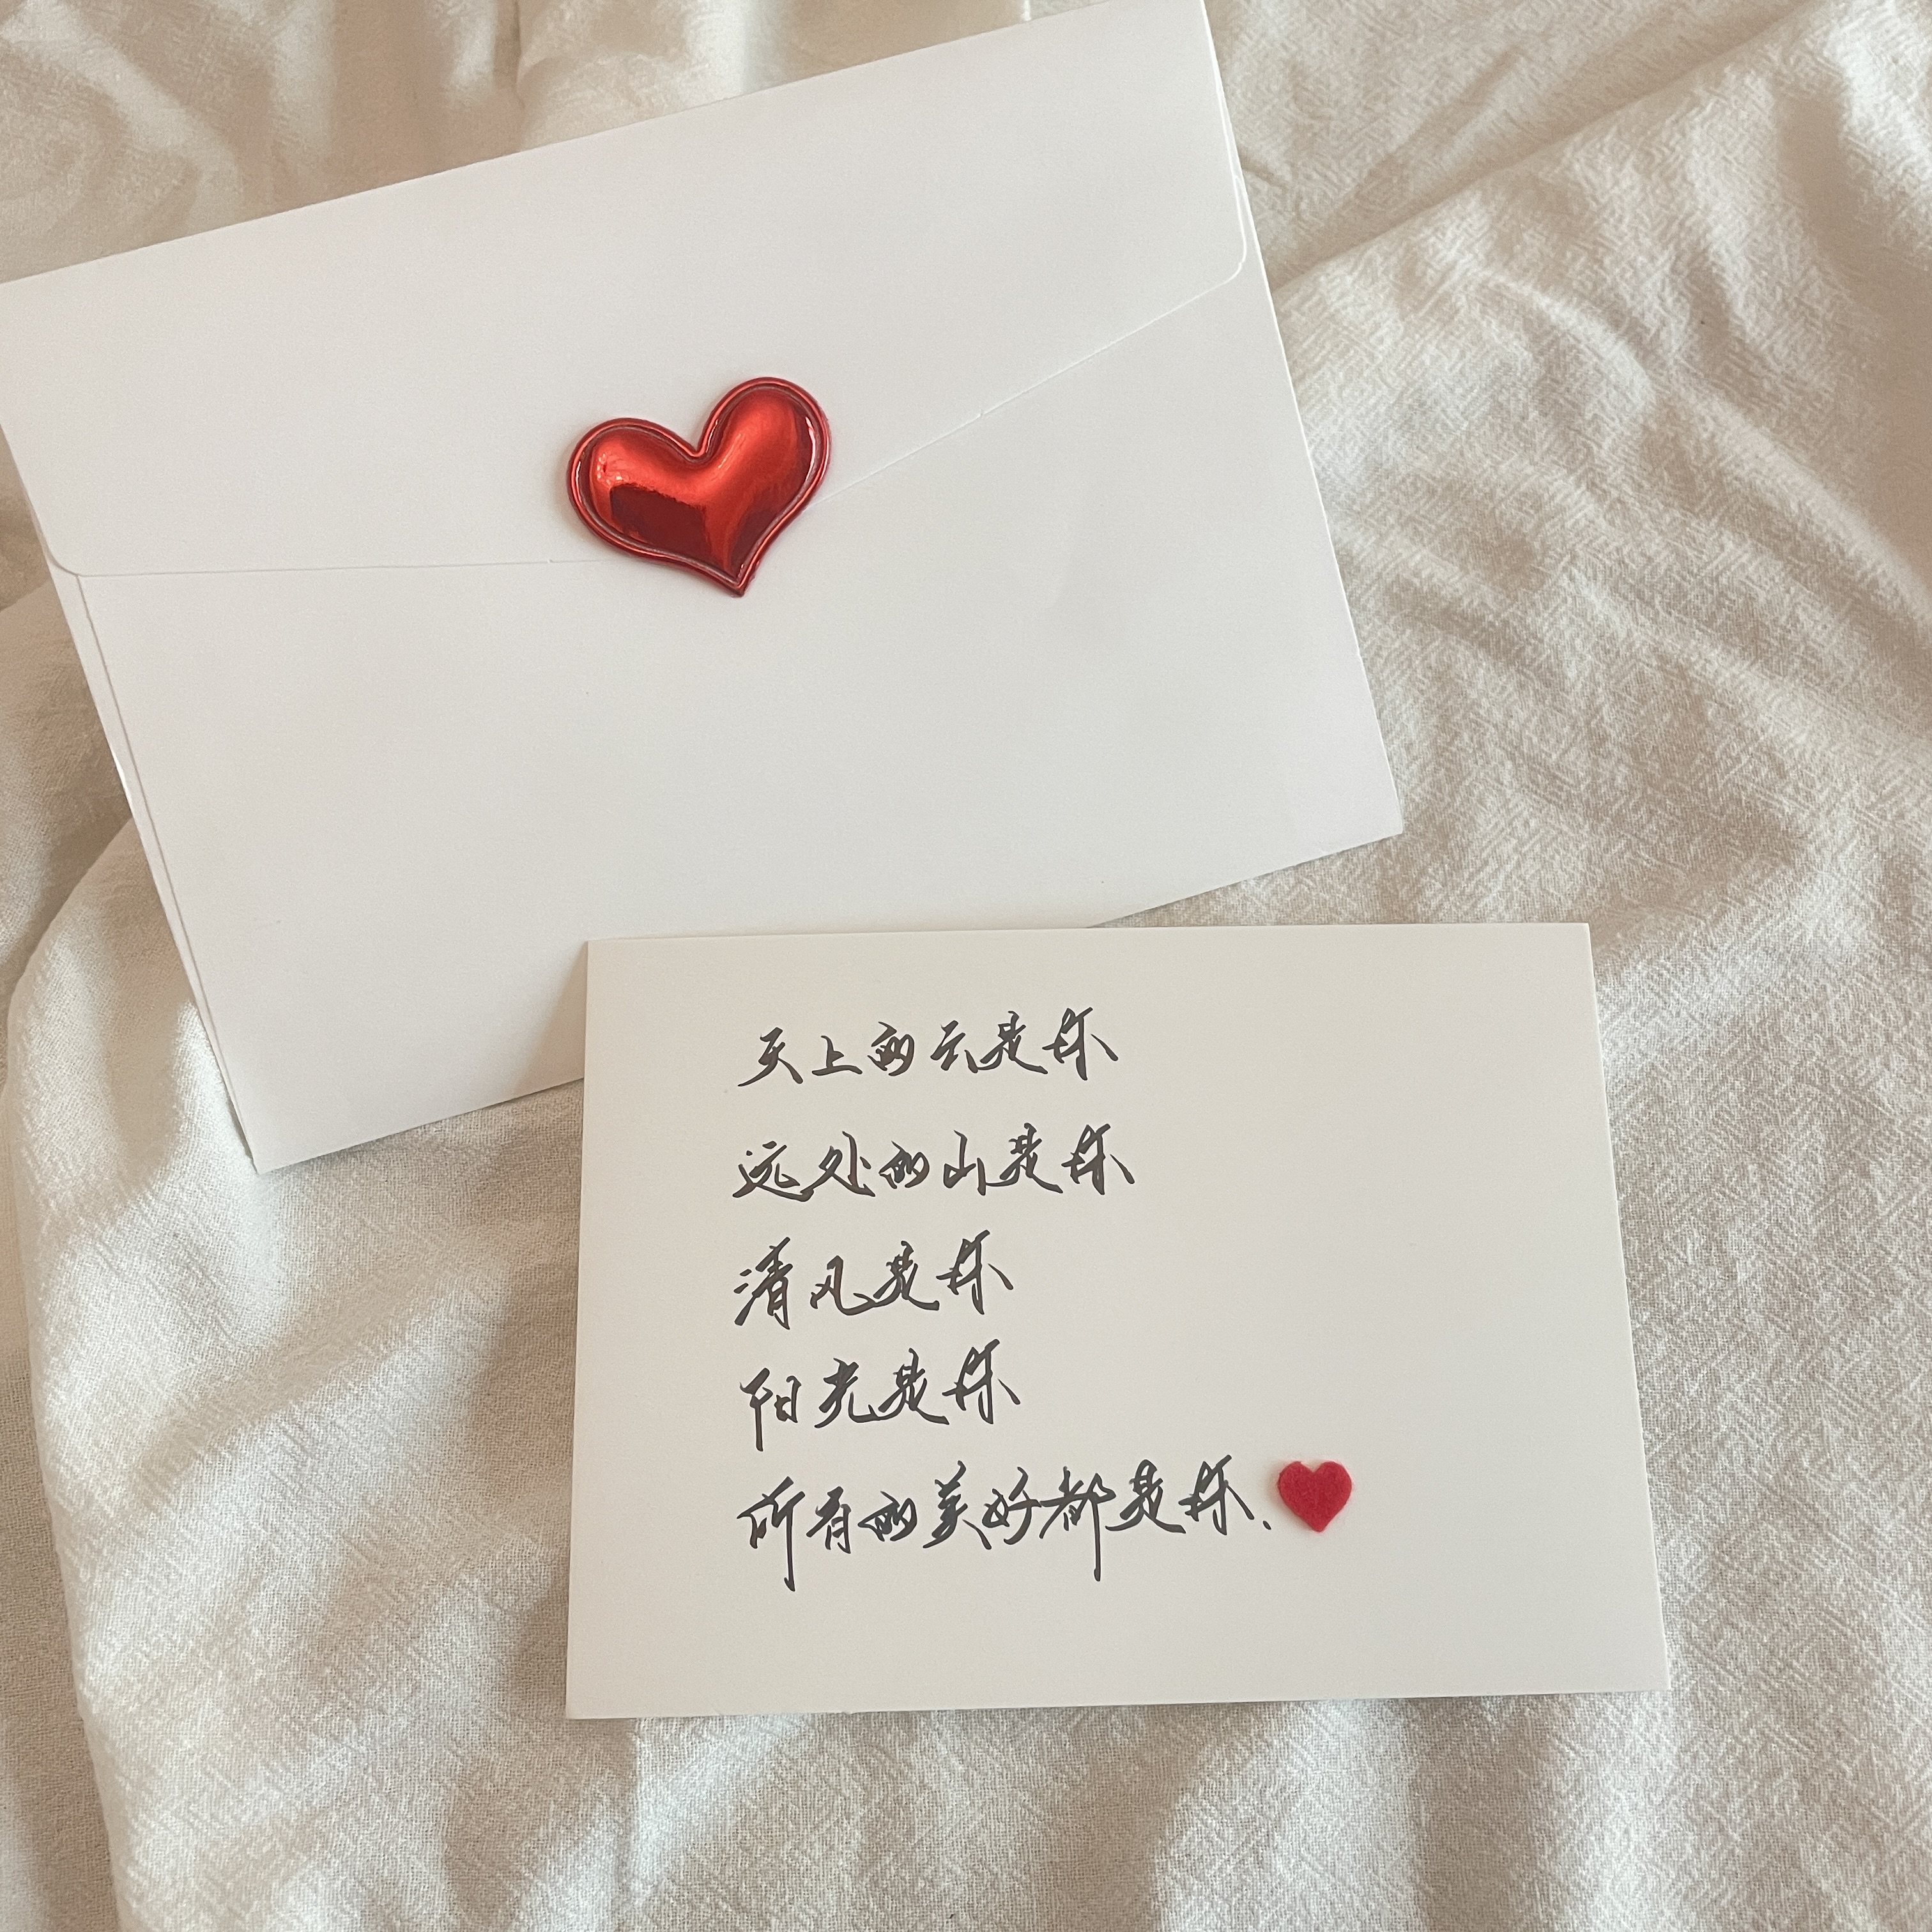 天上的云是你
远处的山是你
清风是你
阳光是你
所有的美好都是你.